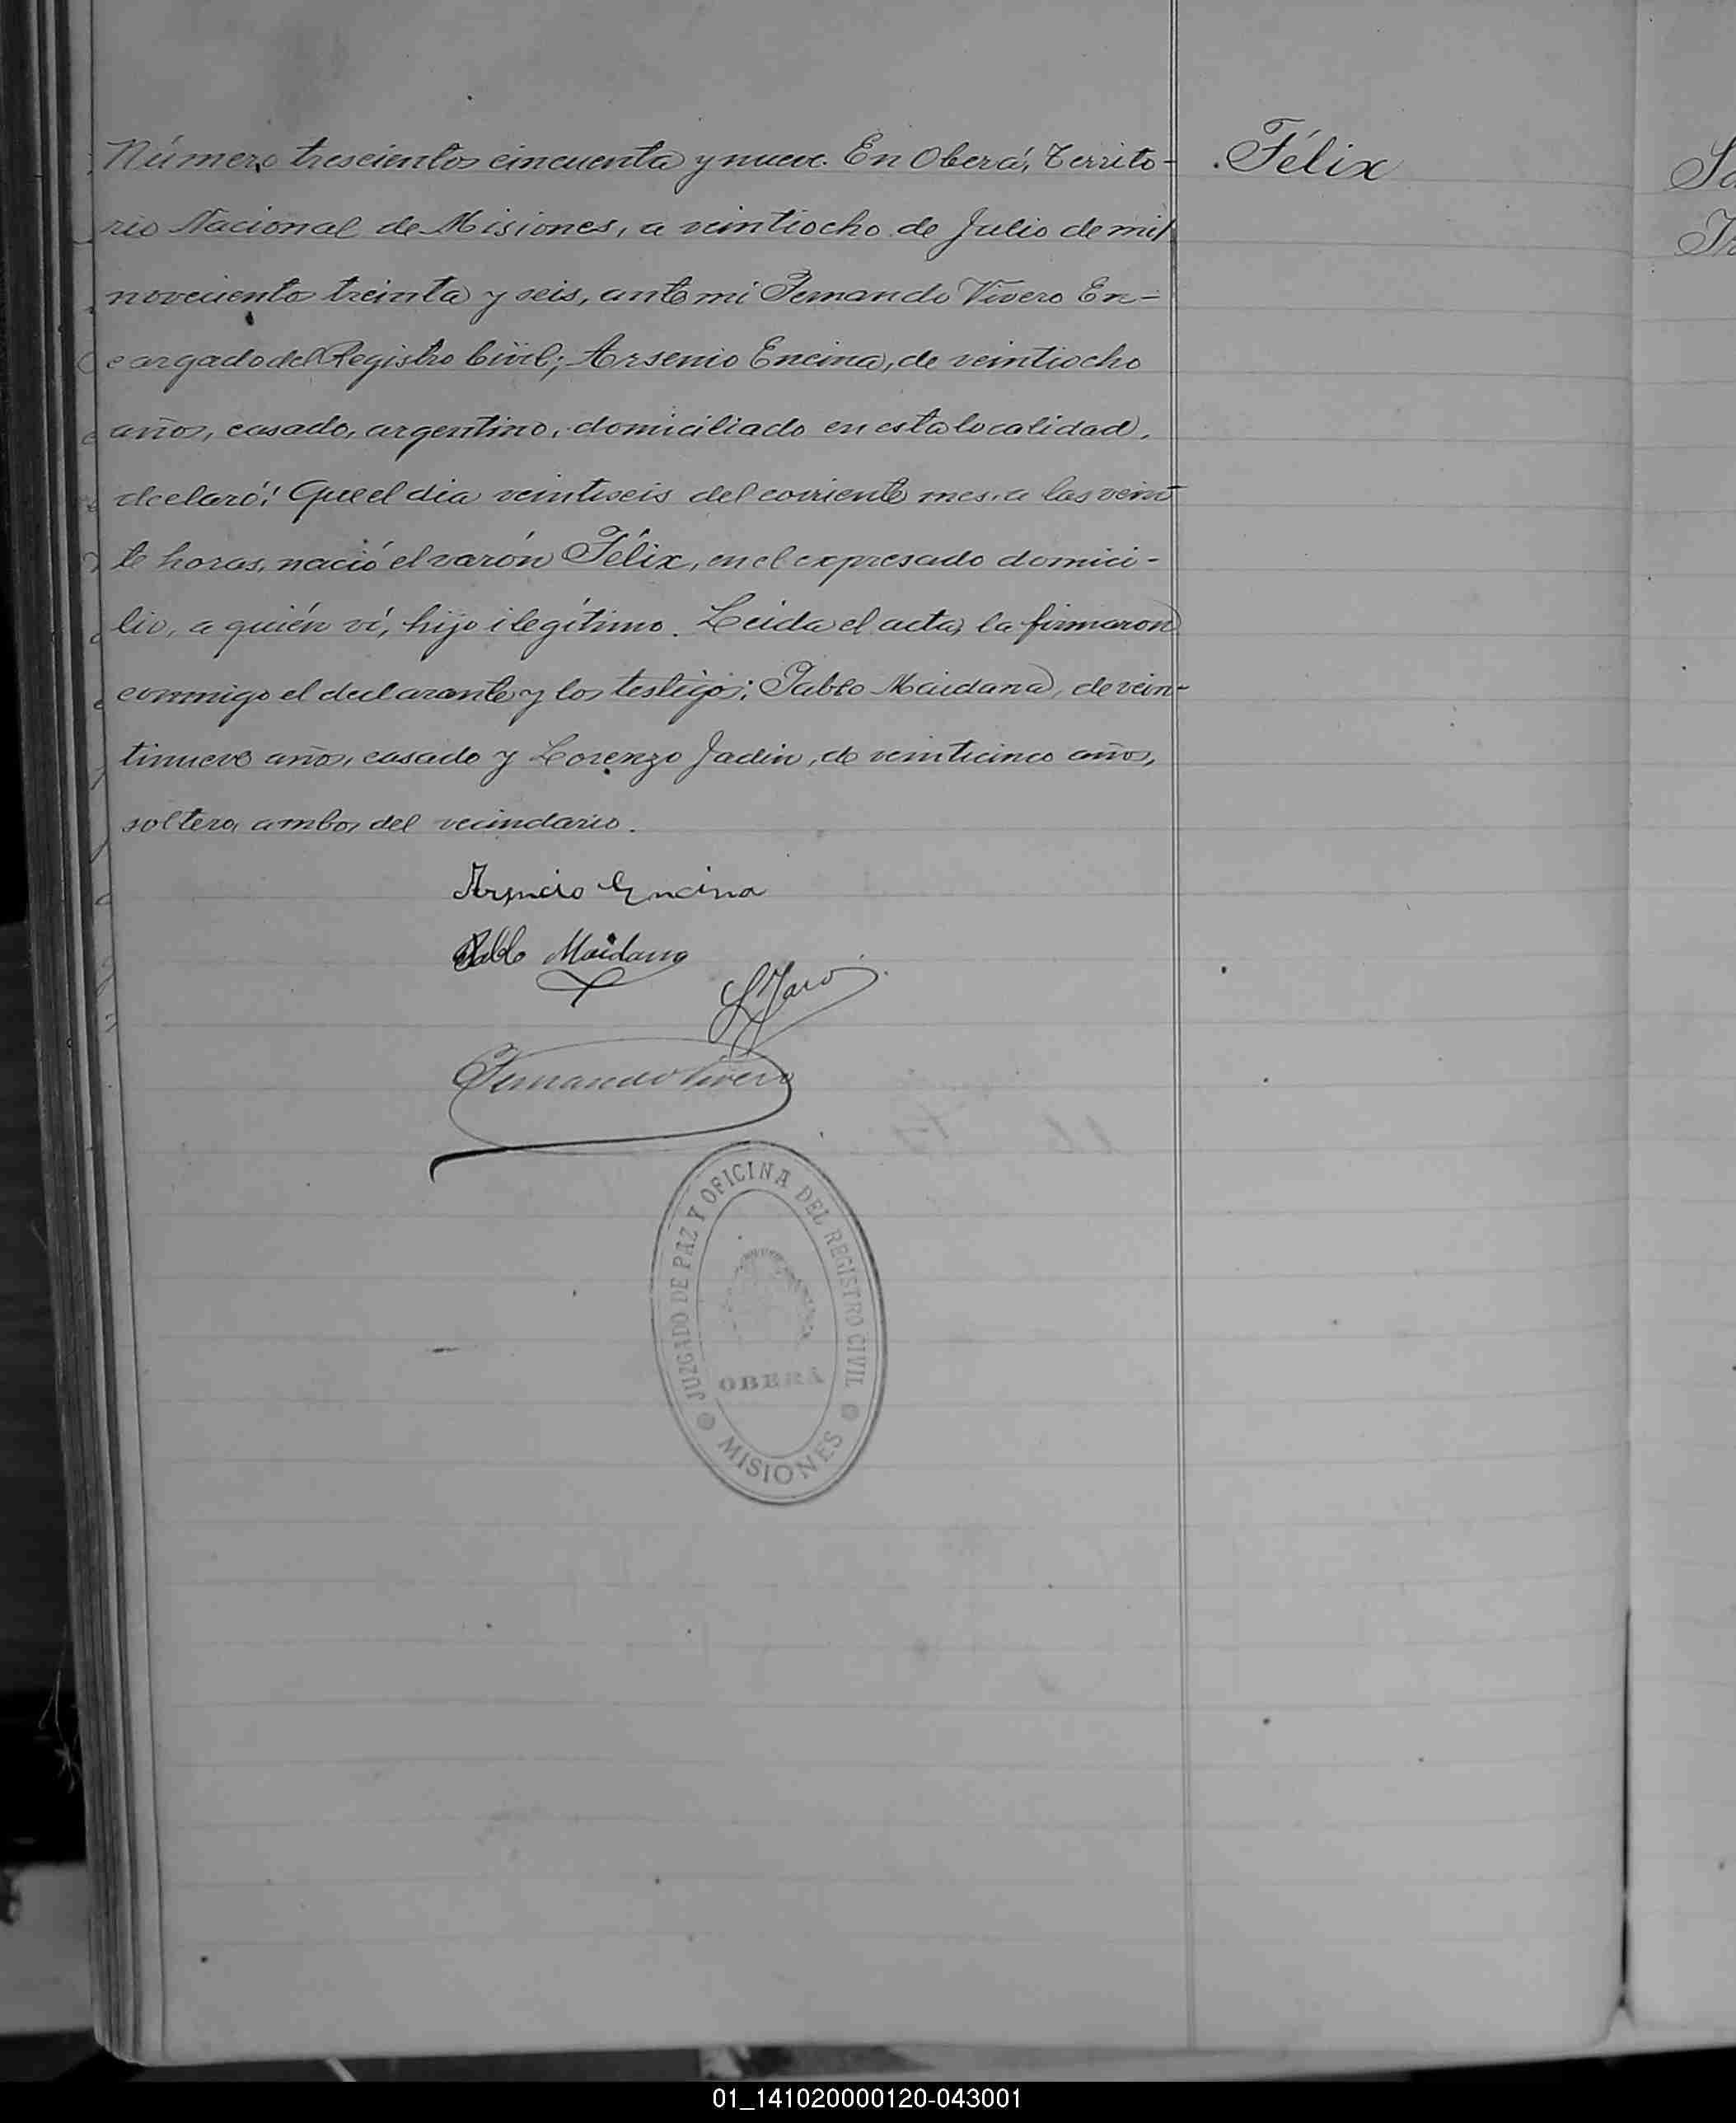 Número trescientos cincuenta y nueve. En Oberá, Territo-
rio Nacional de Misiones, a veintiocho de Julio de mil
novecientos treinta y seis, ante mi Fernando Vivero En-
cargado del Registro Civil; Arsenio Encina, de veintiocho
años, casado, argentino, domiciliado en esta localidad,
declaró: Que el dia veintiseis del corriente mes, a las vein
te horas, nació el varón Félix, en el expresado domici-
lio, a quién ví, hijo ilegítimo. Leída el acta, la firmaron
conmigo el declarante y los testigos: Pablo Maidana, de vein-
tinueve años, casado y Lorenzo Jadin, de veinticinco años,
soltero, ambos del vecindario.
Félix
Arsenio Encina
Pablo Maidana
Fernando Vivero
JUZGADO DE PAZ Y OFICINA DEL REGISTRO CIVIL
OBERÁ
MISIONES
01_141020000120-043001